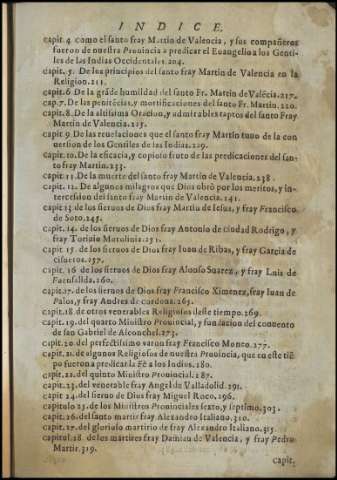 INDICE.
capit. 4 como el santo fray Martin de Valencia, y sus compañeros
fueron de nuestra Prouincia a predicar el Euangelio a los Genti-
les de las Indias Occidentales. 204.
capit. 5. De los principios del santo fray Martin de Valencia en la
Religion. 211.
capit. 6 De la grāde humildad del santo Fr. Martin de Valēcia. 217.
cap. 7. De las penitēcias, y mortificaciones del santo Fr. Martin. 220.
capit. 8. De la altisima Oracion, y admirables raptos del santo Fray
Martin de Valencia. 225.
capit. 9 De las reuelaciones que el santo fray Martin tuuo de la con
uersion de los Gentiles de las Indias. 229.
capit. 10. De la eficacia, y copioso fruto de las predicaciones del san-
to fray Martin. 233.
capit. 11. De la muerte del santo fray Martin de Valencia. 238.
capit. 12. De algunos milagros que Dios obrò por los meritos, y in-
tercession del santo fray Martin de Valencia. 241.
capit 13 de los sieruos de Dios fray Martin de Iesus, y fray Francisco
de Soto. 245.
capit. 14. de los sieruos de Dios fray Antonio de ciudad Rodrigo, y
fray Toriuio Motolinia. 251.
capit. 15. de los sieruos de Dios fray Iuan de Ribas, y fray Garcia de
cisneros. 257.
capit. 16 de los sieruos de Dios fray Alonso Suarez, y fray Luis de
Fuensalida. 260.
capit. 17. de los sieruos de Dios fray Francisco Ximenez, fray Iuan de
Palos, y fray Andres de cordoua. 265.
capit. 18 de otros venerables Religiosos deste tiempo. 269.
capit. 19. del quarto Ministro Prouincial, y fundacion del conuento
de san Gabriel de Alconchel. 273.
capit. 20 del perfectissimo varon fray Francisco Monco. 277.
capit. 21. de algunos Religiosos de nuestra Prouincia, que en este tiē
po fueron a predicar la Fè a los Indios. 280.
capit. 22. del quinto Ministro Prouincial. 287.
capit. 23. del venerable fray Angel de Valladolid. 291.
capit 24. del sieruo de Dios fray Miguel Roco. 296.
capitulo 25. de los Ministros Prouinciales sexto, y septimo. 303.
capit. 26 del santo martir fray Alexandro Italiano. 310.
capit. 27. del glorioso martirio de fray Alexandro Italiano. 315
capitul. 28. de los martires fray Damian de Valencia, y fray Pedro
Martir. 319.
capit.